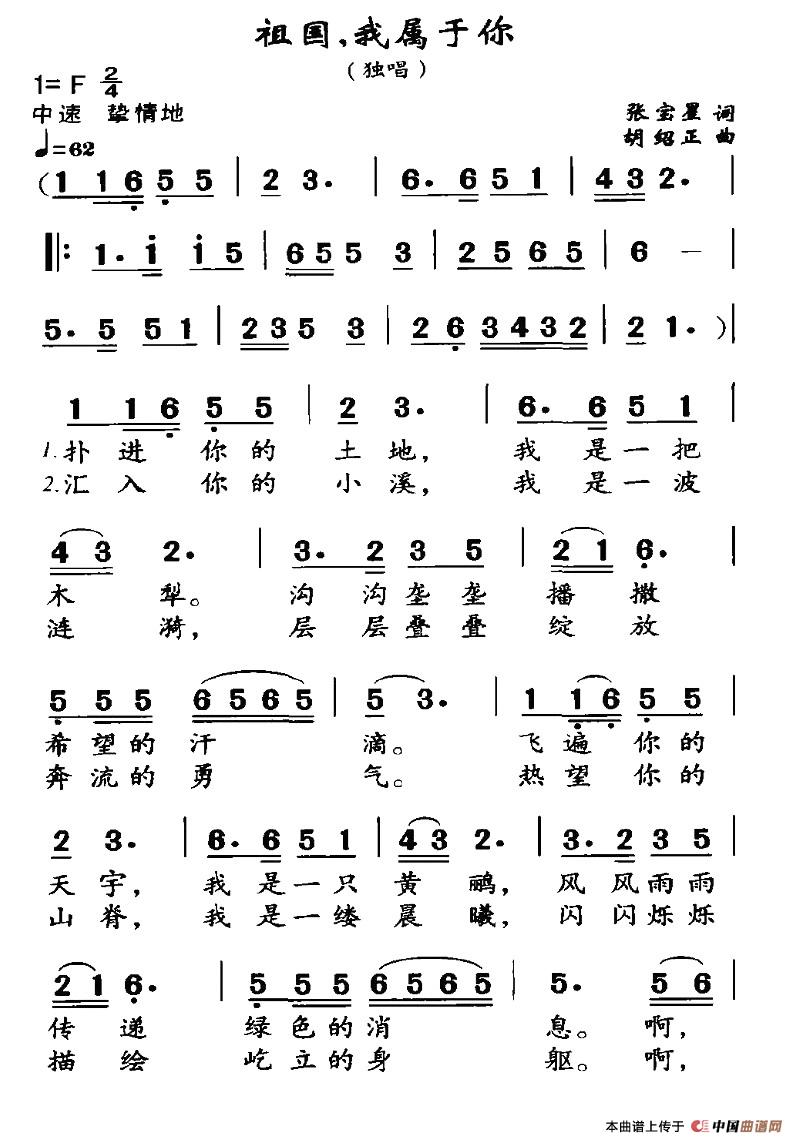 祖国,我属于你
(独唱)
1= F 2/4
中速 挚情地
张宝星 词
♩=62
胡绍正 曲
(1 1 6 5 5 | 2 3. | 6. 6 5 1 | 4 3 2. |
‖: 1. i i 5 | 6 5 5 3 | 2 5 6 5 | 6 － |
5. 5 5 1 | 2 3 5 3 | 2 6 3 4 3 2 | 2 1. )|
1 1 6 5 5 | 2 3. | 6. 6 5 1 |
1.扑 进 你 的 土 地, 我 是 一 把
2.汇 入 你 的 小 溪, 我 是 一 波
4 3 2. | 3. 2 3 5 | 2 1 6. |
木 犁。 沟 沟 垄 垄 播 撒
涟 漪, 层 层 叠 叠 绽 放
5 5 5 6 5 6 5 | 5 3. | 1 1 6 5 5 |
希 望 的 汗 滴。 飞 遍 你 的
奔 流 的 勇 气。 热 望 你 的
2 3. | 6. 6 5 1 | 4 3 2. | 3. 2 3 5 |
天 宇, 我 是 一 只 黄 鹂, 风 风 雨 雨
山 脊, 我 是 一 缕 晨 曦, 闪 闪 烁 烁
2 1 6. | 5 5 5 6 5 6 5 | 5. 5 6 |
传 递 绿 色 的 消 息。 啊,
描 绘 屹 立 的 身 躯。 啊,
本曲谱上传于 中国曲谱网